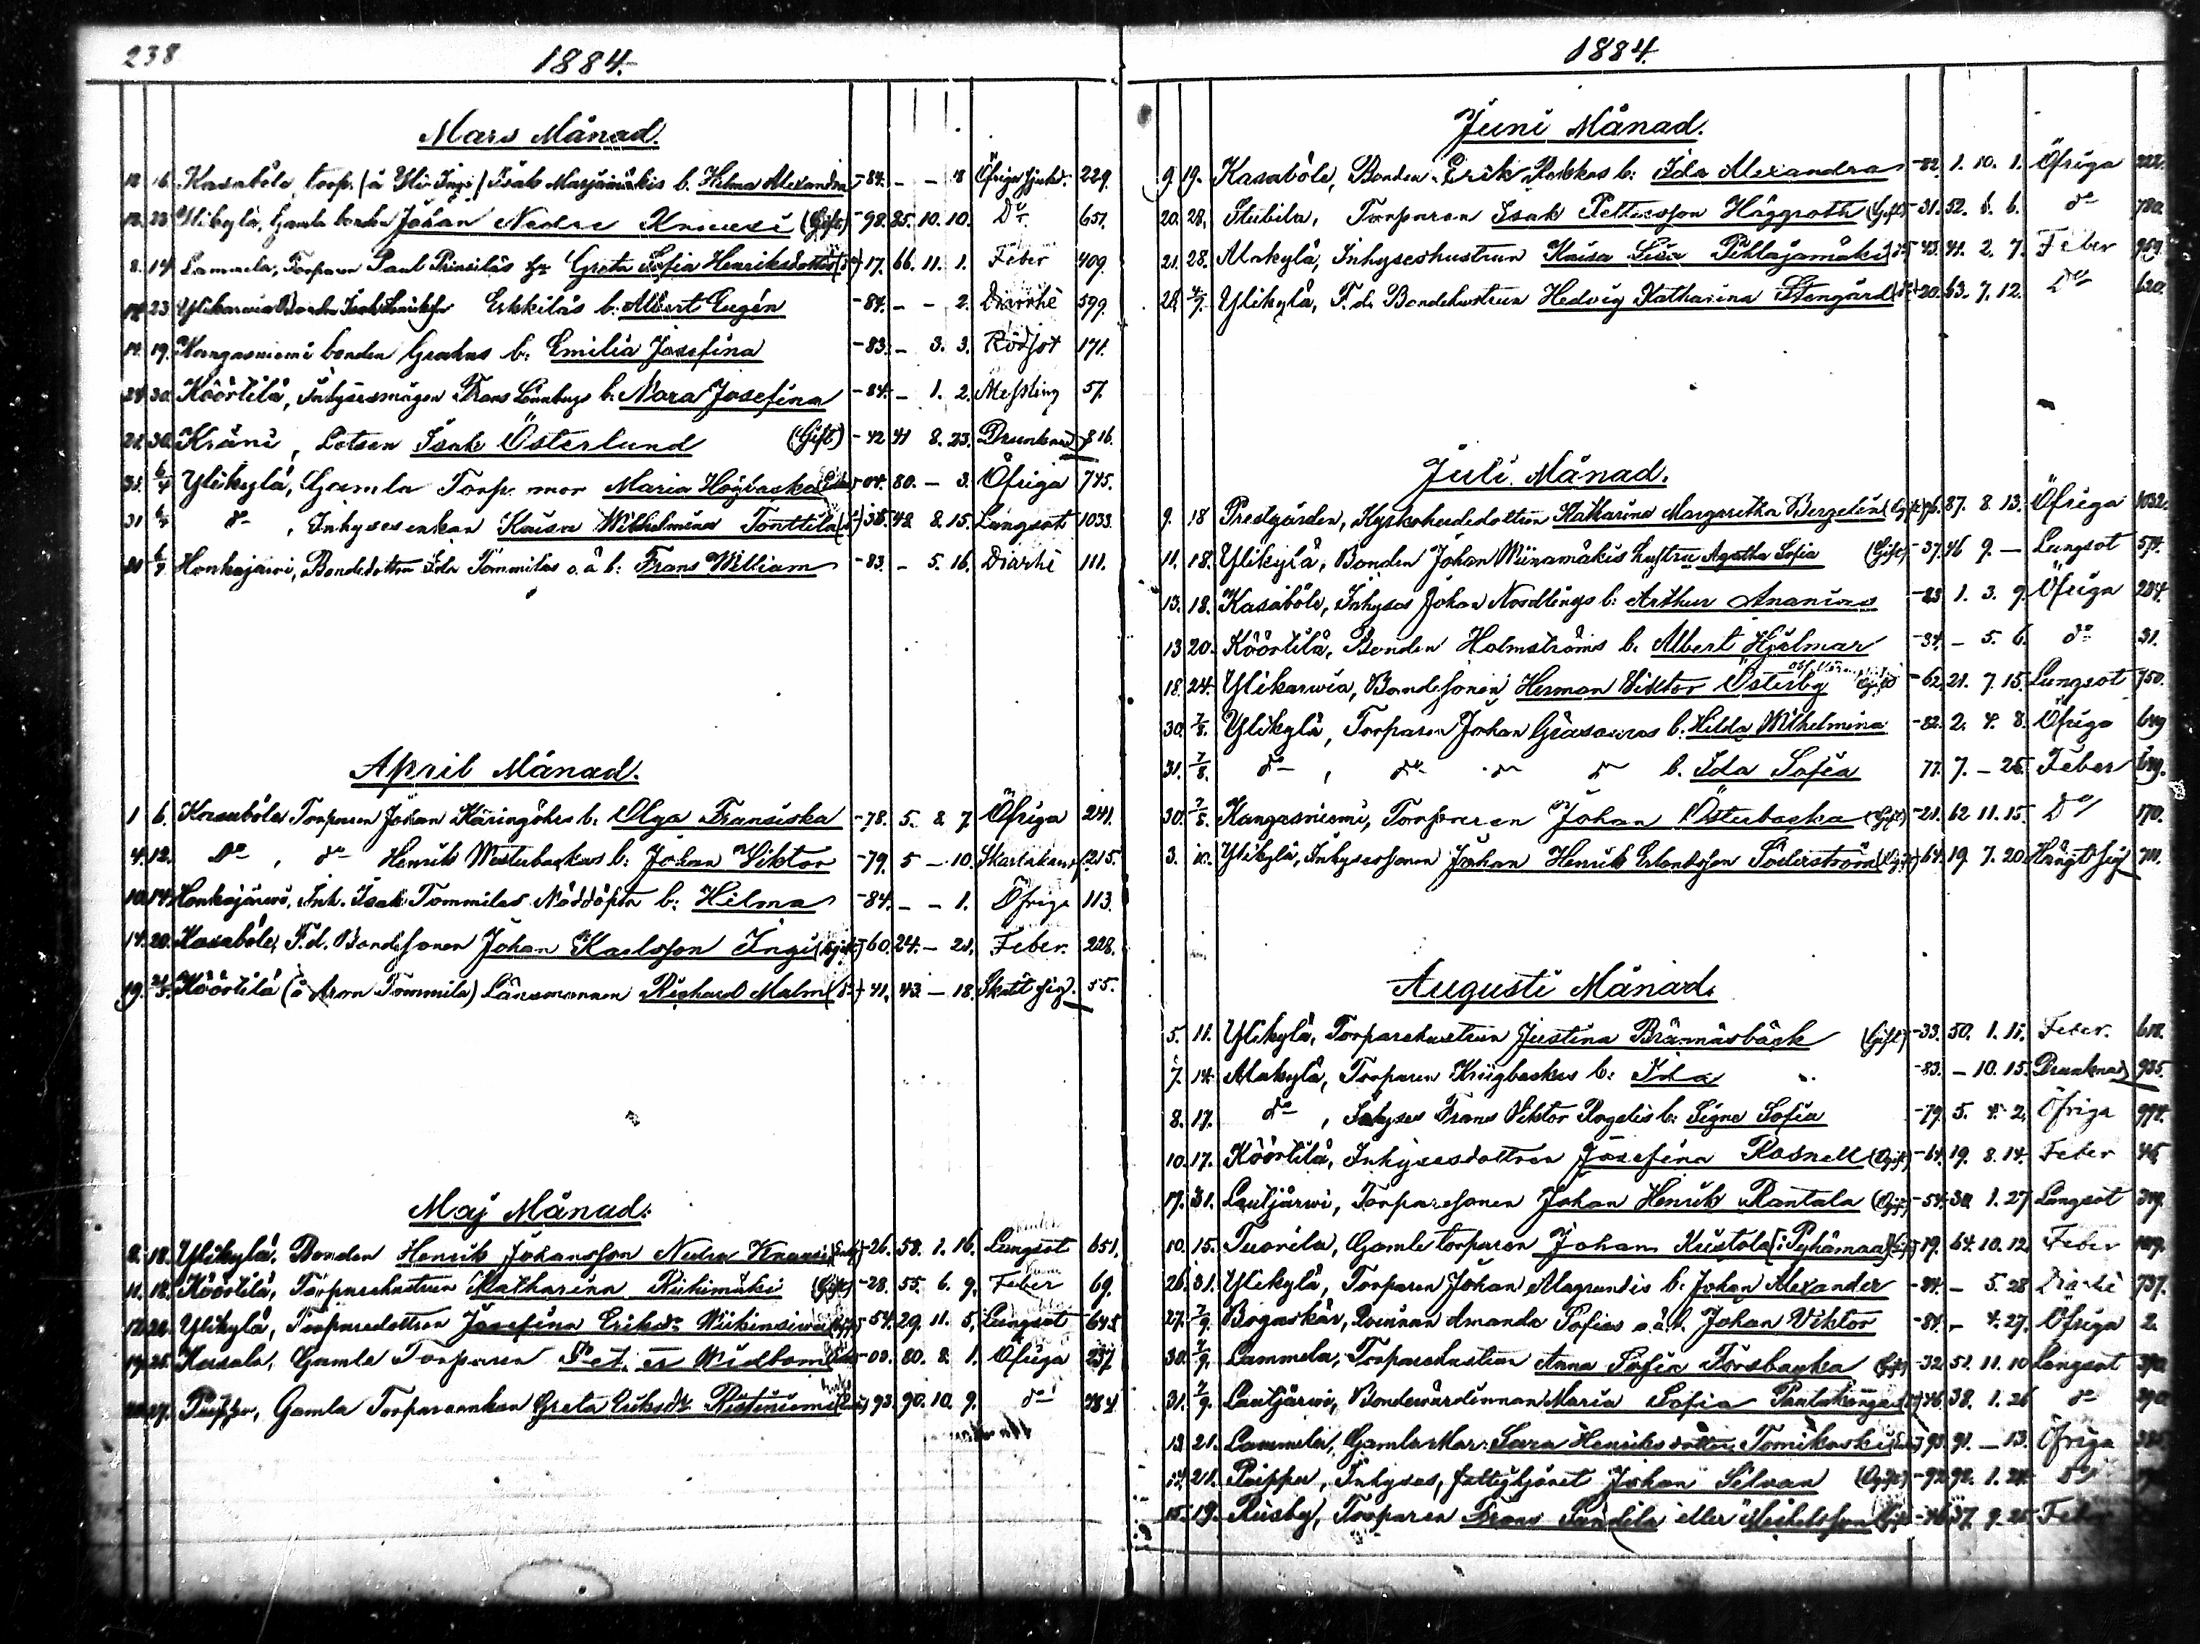 238
1884.
Mars Månad.
12. 16. Kasaböle, torp. (å Yli-Ingi) Isak Marjamäkis b. Hilma Alexandra -84. – – 8 Öfriga sjukd. 229.
12. 23. Ylikylä, Gamla bonden Johan Nedre Knuusi (Gift) -98. 85. 10. 10. Do 651.
8. 14. Lammela, Torparen Paul Prinsiläs h. Greta Sofia Henriksdotter -17. 66. 11. 1. Feber 409.
23 Ylikarwia Bonden Isak Erkkiläs b. Albert Eugén -84. – – 2. Diarrhé 599.
19. Kangasniemi bonden Grahns b. Emilia Josefina -83. – 3. 3. Rödsot 171.
24. 30. Köörtilä, Inhysesmågen Frans Lönnbergs b. Nora Josefina -84. – 1. 2. Messling 57.
21. 30. Kräni, Lotsen Isak Österlund (Gift) -42 41 8. 23. Drunknad 816.
31. 6/4 Ylikylä, Gamla Torp. mor Maria Högbacka -04. 80. – 3. Öfriga 745.
31 6/4 do , Inhysesenkan Kaisa Wilhelmina Tonttila 42 8. 15. Lungsot 1033.
6/4 Honkajärvi, Bondedottern Ida Tommilas o. ä b. Frans William -83. – 5. 16. Diarrhé 111.
April Månad.
1 6. Kasaböle Torparen Johan Käringöhrs b. Olga Fransiska -78. 5. 8. 7. Öfriga 241.
4. 12. Do , do Henrik Westerbackas b. Johan Viktor -79. 5 – 10. Skarlakansf. 215.
10. 14. Honkajärwi, Inh. Isak Tommilas Nöddöpta b. Hilma -84. – – 1. Öfriga 113.
14. 20. Kasaböle, F.d. Bondesonen Johan Karlsson Ingi -60. 24. – 21. Feber. 228.
19. Köörtilä (å Aron Tommila) Länsmannen Richard Malm -41. 43. – 18. Skutit sig. 55.
Maj Månad.
8. 18. Ylikylä, Bonden Henrik Johansson Nedre Knuusi -26. 58. 1. 16. Lungsot 651.
11. 18. Köörtilä, Torparehustrun Katharina Riihimäki (Gift) -28. 55. 6. 9. Feber 69.
Ylikylä, Torparedottren Josefina Eriksdr Wiikinsiwu -54. 29. 11. 5. Lungsot 645
19. 25. Kasala, Gamle Torparen Petter Widbom 80. 8. 1. Öfriga 237.
Gamla Torpareenkan Greta Eriksdr Ristiniemi -93. 90. 10. 9. do 784
1884.
Juni Månad.
9. 19. Kasaböle, Bonden Erik Rokkas b. Ida Alexandra -82. 1. 10. 1. Öfriga 222.
20. 28. Stubila, Torparen Isak Pettersson Häggroth (Gift) -31. 52. 8. 6. do 780.
21. 28. Alakylä, Inhyseshustrun Kaisa Lisa Pihlajamäki -43. 41. 2. 7. Feber 959.
28. 4/7. Ylikylä, F. d. Bondehustrun Hedvig Katharina Stengård -20. 63. 7. 12. Do 620.
Juli Månad.
9. 18 Prestgården, Kyrkoherdedottren Katharina Margaretha Bergelin 87. 8. 13. Öfriga 1032.
11. 18. Ylikylä, Bonden Johan Wiinamäkis hustru Agatha Sofia (Gift) -37. 46 9. – Lungsot 574.
13. 18. Kasaböle, Inhyses Johan Nordlings b. Arthur Ananias -83 1. 3. 9. Öfriga 234.
13 20. Köörtilä, Bonden Holmströms b. Albert Hjalmar – 5. 6. do 31.
18. 24. Ylikarwia, Bondesonen Herman Viktor Österby -62. 21. 7. 15. Lungsot 750.
30. 7/8. Ylikylä, Torparen Johan Gräsowas b. Hilda Wilhelmina -82. 2. 4. 8. Öfriga 649
31. 7/8. do , do do do b. Ida Sofia 77. 7. – 25. Feber 649.
30. 7/8. Kangasniemi, Torparen Johan Österbacka (Gift) -21. 62 11. 15. Do 170.
3. 10. Ylikylä, Inhysessonen Johan Henrik Erlandsson Söderström -64. 19 7. 20. Hängt sig 711.
Augusti Månad.
5. 11. Ylikylä, Torparehustrun Justina Brännäsbäck (Gift) -33. 50. 1. 11. Feber. 618.
7. 14. Alakylä, Torparen Krigbackas b. Ida -83. – 10. 15. Drunknad 935.
8. 17. do , Inhyses Frans Viktor Rogelis b. Signe Sofia -79. 5. 4. 2. Öfriga 994.
10. 17. Köörtilä, Inhysesdottren Josefina Rosnell (Ogift) -64. 19. 8. 14. Feber 46.
17. 31. Lautjärwi, Torparesonen Johan Henrik Rantala (Ogift) -54. 30. 1. 27. Lungsot 349.
10. 15. Tuorila, Gamle torparen Johan Kustola (i Pyhämaa) -19. 64. 10. 12. Feber
26. 31. Ylikylä, Torparen Johan Alagrundis b. Johan Alexander -84. – 5. 28 Diarhé 737.
27. 7/9. Bogaskär, Qvinnan Amanda Sofias o. ä. b. Johan Viktor -84. – 4. 27. Öfriga 2.
30. 7/9. Lammela, Torparehustrun Anna Sofia Forsbacka (Gift) -32. 51. 11. 10 Lungsot 390.
31. 7/9. Lautjärwi, Bondevärdinnan Maria Sofia -46. 38. 1. 26 do
13. 21. Lammela, Gamla Mor. Sara Henriksdotter Tomikoski -93. 91. – 13. Öfriga
21. Peippu, Inhyses, fattighjonet Johan Silvan (Ogift) -92. 92. 1. 24. do
15. 19. Riisby, Torparen Frans Pandila eller Michelsson 37. 9. 25 Feber